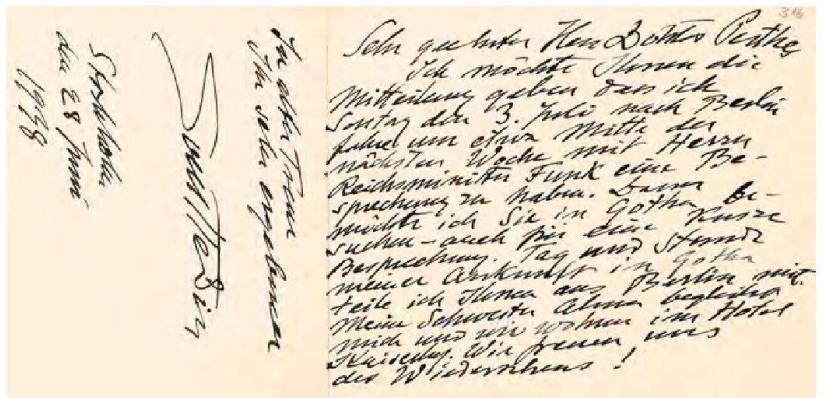 316
Sehr geehrter Herr Doktor Perthes
Ich möchte Ihnen die
Mitteilung geben dass ich
Sontag den 3. Juli nach Berlin
fahre um etwa Mitte der
nächsten Woche mit Herrn
Reichsminister Funk eine Be-
sprechung zu haben. Dann
möchte ich Sie in Gotha be-
suchen – auch für eine kurze
Besprechung. Tag und Stunde
meiner Ankunft in Gotha
teile ich Ihnen aus Berlin mit.
Meine Schwester Alma begleitet
mich und wir wohnen im Hotel
Kaiserhof. Wir freuen uns
des Wiedersehens!
In alter Treue
Ihr sehr ergebener
Sven Hedin
Stockholm
den 28 Juni
1938